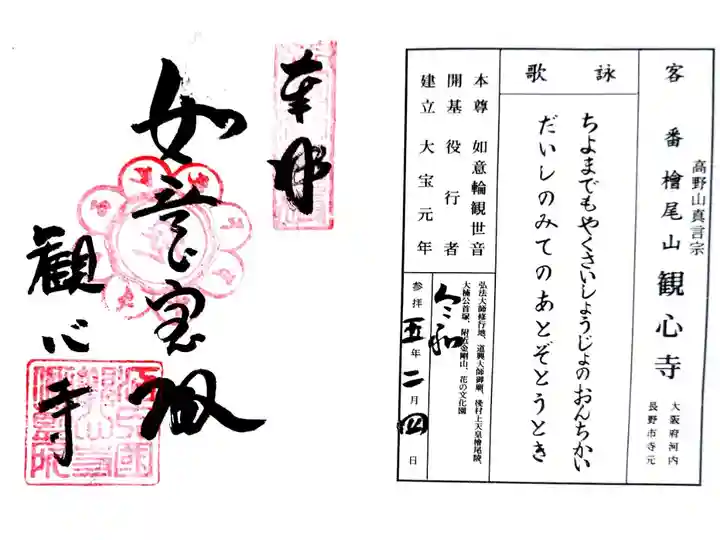 客番 檜尾山 観心寺
高野山真言宗
大阪府河内
長野市寺元
詠歌
ちよまでもやくさいしょうじょのおんちかい
だいしのみてのあとぞとうとき
本尊 如意輪観世音
開基 役行者
建立 大宝元年
弘法大師修行地、道興大師御廟、後村上天皇檜尾陵、
大楠公首塚、附近金剛山、花の文化園
令和
参拝 五年 二月 四日
奉拝
如意宝殿
観心寺